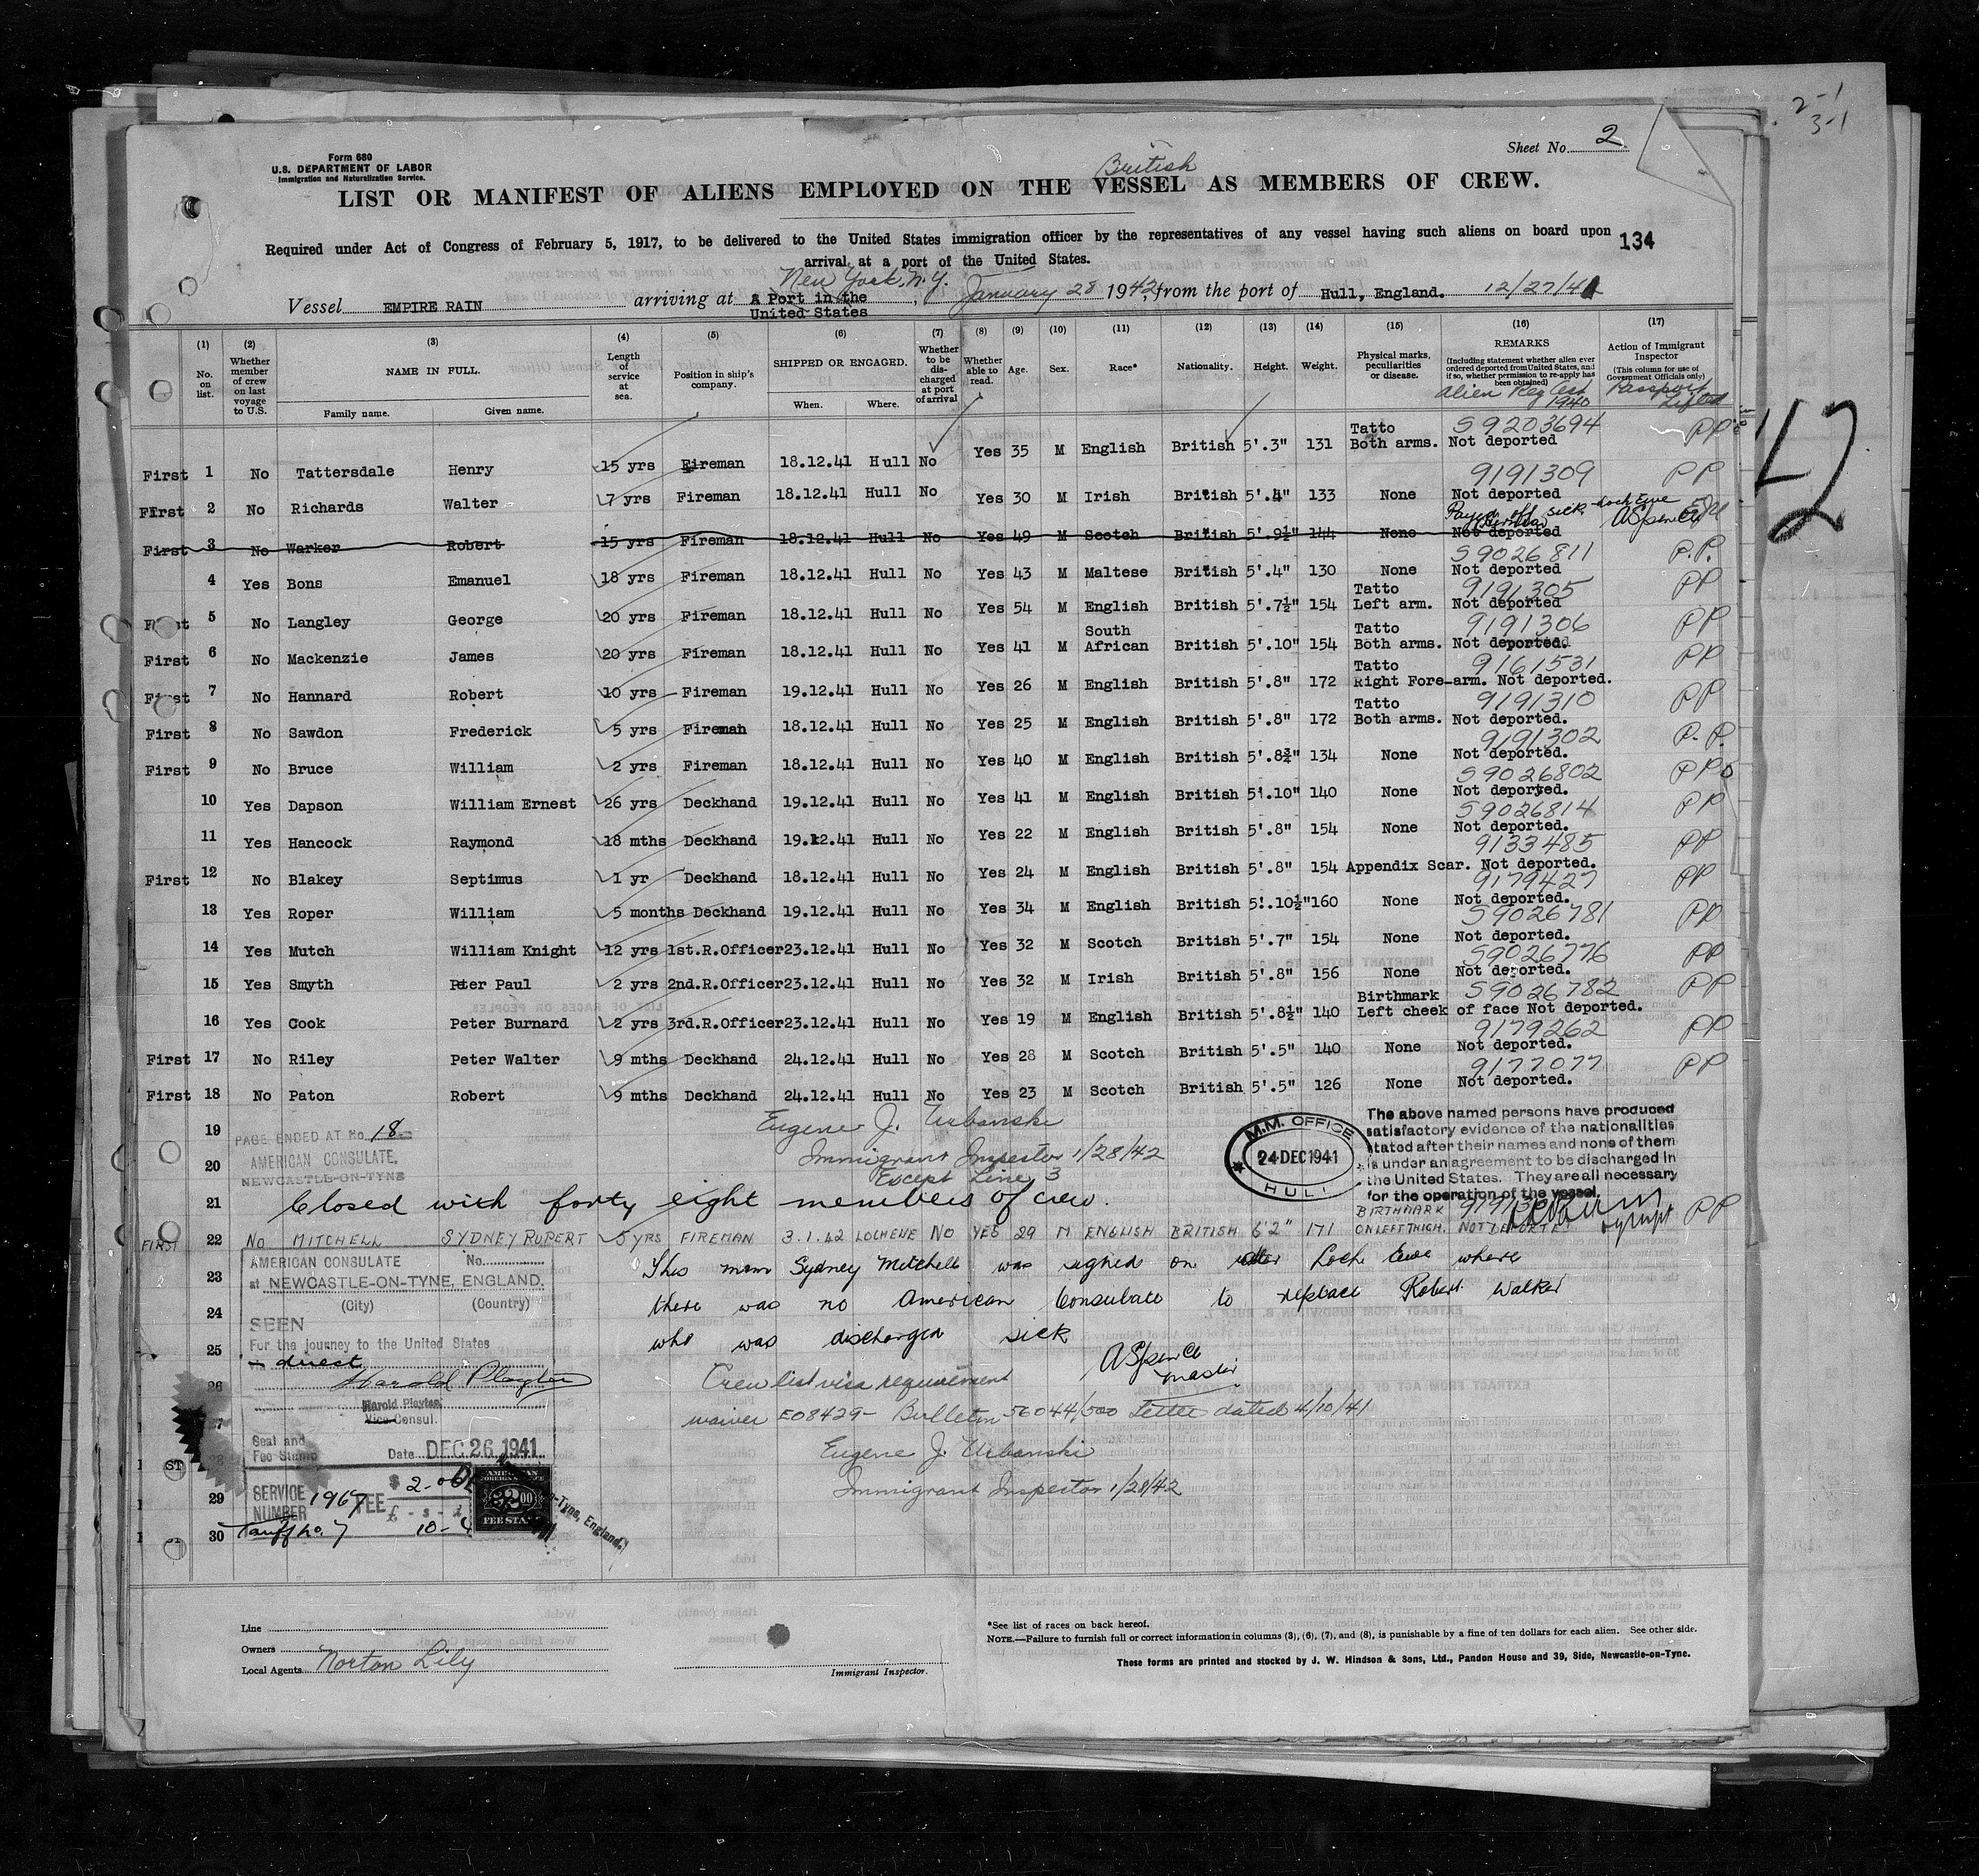 2-1
3-1
Form 680
U.S. DEPARTMENT OF LABOR
Immigration and Naturalization Service.
Sheet No. 2
British
LIST OR MANIFEST OF ALIENS EMPLOYED ON THE VESSEL AS MEMBERS OF CREW.
Required under Act of Congress of February 5, 1917, to be delivered to the United States immigration officer by the representatives of any vessel having such aliens on board upon
arrival at a port of the United States.
134
New York, N.Y.
Vessel EMPIRE RAIN arriving at A Port in the United States, January 28 1942, from the port of Hull, England. 12/27/41
(1) (2) (3) (4) (5) (6) (7) (8) (9) (10) (11) (12) (13) (14) (15) (16) (17)
No. on list. Whether member of crew on last voyage to U.S. NAME IN FULL. Family name. Given name. Length of service at sea. Position in ship's company. SHIPPED OR ENGAGED. When. Where. Whether to be discharged at port of arrival Whether able to read. Age. Sex. Race* Nationality. Height. Weight. Physical marks, peculiarities or disease. REMARKS (Including statement whether alien ever ordered deported from United States, and if so, whether permission to re-apply has been obtained) Action of Immigrant Inspector (This column for use of Government Officials only)
Alien Reg Act 1940 Passport Lifted
First 1 No Tattersdale Henry 15 yrs Fireman 18.12.41 Hull No Yes 35 M English British 5'.3" 131 Tatto Both arms. S9203694 Not deported PP
First 2 No Richards Walter 7 yrs Fireman 18.12.41 Hull No Yes 30 M Irish British 5'.4" 133 None 9191309 Not deported PP
Payed off sick Loch Ewe ASpence
First 3 No Warker Robert 15 yrs Fireman 18.12.41 Hull No Yes 49 M Scotch British 5'.9½" 144 None Not deported
4 Yes Bons Emanuel 18 yrs Fireman 18.12.41 Hull No Yes 43 M Maltese British 5'.4" 130 None S9026811 Not deported P.P.
First 5 No Langley George 20 yrs Fireman 18.12.41 Hull No Yes 54 M English British 5'.7½" 154 Tatto Left arm. 9191305 Not deported PP
First 6 No Mackenzie James 20 yrs Fireman 18.12.41 Hull No Yes 41 M South African British 5'.10" 154 Tatto Both arms. 9191306 Not deported. PP
First 7 No Hannard Robert 10 yrs Fireman 19.12.41 Hull No Yes 26 M English British 5'.8" 172 Tatto Right Fore-arm. 9161531 Not deported. PP
First 8 No Sawdon Frederick 5 yrs Fireman 18.12.41 Hull No Yes 25 M English British 5'.8" 172 Tatto Both arms. 9191310 Not deported. PP
First 9 No Bruce William 2 yrs Fireman 18.12.41 Hull No Yes 40 M English British 5'.8¾" 134 None 9191302 Not deported. P.P.
10 Yes Dapson William Ernest 26 yrs Deckhand 19.12.41 Hull No Yes 41 M English British 5'.10" 140 None S9026802 Not deported. PP
11 Yes Hancock Raymond 18 mths Deckhand 19.12.41 Hull No Yes 22 M English British 5'.8" 154 None S9026814 Not deported. PP
First 12 No Blakey Septimus 1 yr Deckhand 18.12.41 Hull No Yes 24 M English British 5'.8" 154 Appendix Scar. 9133485 Not deported. PP
13 Yes Roper William 5 months Deckhand 19.12.41 Hull No Yes 34 M English British 5'.10½" 160 None 9179427 Not deported. PP
14 Yes Mutch William Knight 12 yrs 1st.R.Officer 23.12.41 Hull No Yes 32 M Scotch British 5'.7" 154 None S9026781 Not deported. PP
15 Yes Smyth Peter Paul 2 yrs 2nd.R.Officer 23.12.41 Hull No Yes 32 M Irish British 5'.8" 156 None S9026776 Not deported. PP
16 Yes Cook Peter Burnard 2 yrs 3rd.R.Officer 23.12.41 Hull No Yes 19 M English British 5'.8½" 140 Birthmark Left cheek of face S9026782 Not deported. PP
First 17 No Riley Peter Walter 9 mths Deckhand 24.12.41 Hull No Yes 28 M Scotch British 5'.5" 140 None 9179262 Not deported. PP
First 18 No Paton Robert 9 mths Deckhand 24.12.41 Hull No Yes 23 M Scotch British 5'.5" 126 None 9177077 Not deported. PP
19
PAGE ENDED AT No. 18
AMERICAN CONSULATE,
NEWCASTLE-ON-TYNE
Eugene J. Urbanski
20
Immigrant Inspector 1/28/42
Except Line 3
M.M. OFFICE
24 DEC 1941
HULL
The above named persons have produced
satisfactory evidence of the nationalities
stated after their names and none of them
is under an agreement to be discharged in
the United States. They are all necessary
for the operation of the vessel.
21 Closed with forty eight members of crew.
FIRST 22 NO MITCHELL SYDNEY RUPERT 5 YRS FIREMAN 3.1.42 LOCHEWE NO YES 29 M ENGLISH BRITISH 6'2" 171 BIRTHMARK ON LEFT THIGH. NOT DEPORTED PP
23 This man Sydney Mitchell was signed on at Loch Ewe where
24 there was no American Consulate to replace Robert Walker
25 who was discharged sick
ASpence
Master
AMERICAN CONSULATE No.
at NEWCASTLE-ON-TYNE, ENGLAND.
(City) (Country)
SEEN
For the journey to the United States
direct
Harold Playter
Harold Playter
Vice Consul.
Seal and
Fee Stamp
Date DEC 26 1941
SERVICE NUMBER 1967
FEE $ 2.00
£ - s - d
Tariff No. 7
AMERICAN FOREIGN SERVICE
$2.00
FEE STAMP
26 Crew list visa requirement
27 waiver EO8429 - Bulletin 56044/500 Letter dated 4/10/41
28 Eugene J. Urbanski
29 Immigrant Inspector 1/28/42
30
Line
Owners
Local Agents Norton Lily
Immigrant Inspector.
*See list of races on back hereof.
NOTE.—Failure to furnish full or correct information in columns (3), (6), (7), and (8), is punishable by a fine of ten dollars for each alien. See other side.
These forms are printed and stocked by J. W. Hindson & Sons, Ltd., Pandon House and 39, Side, Newcastle-on-Tyne.